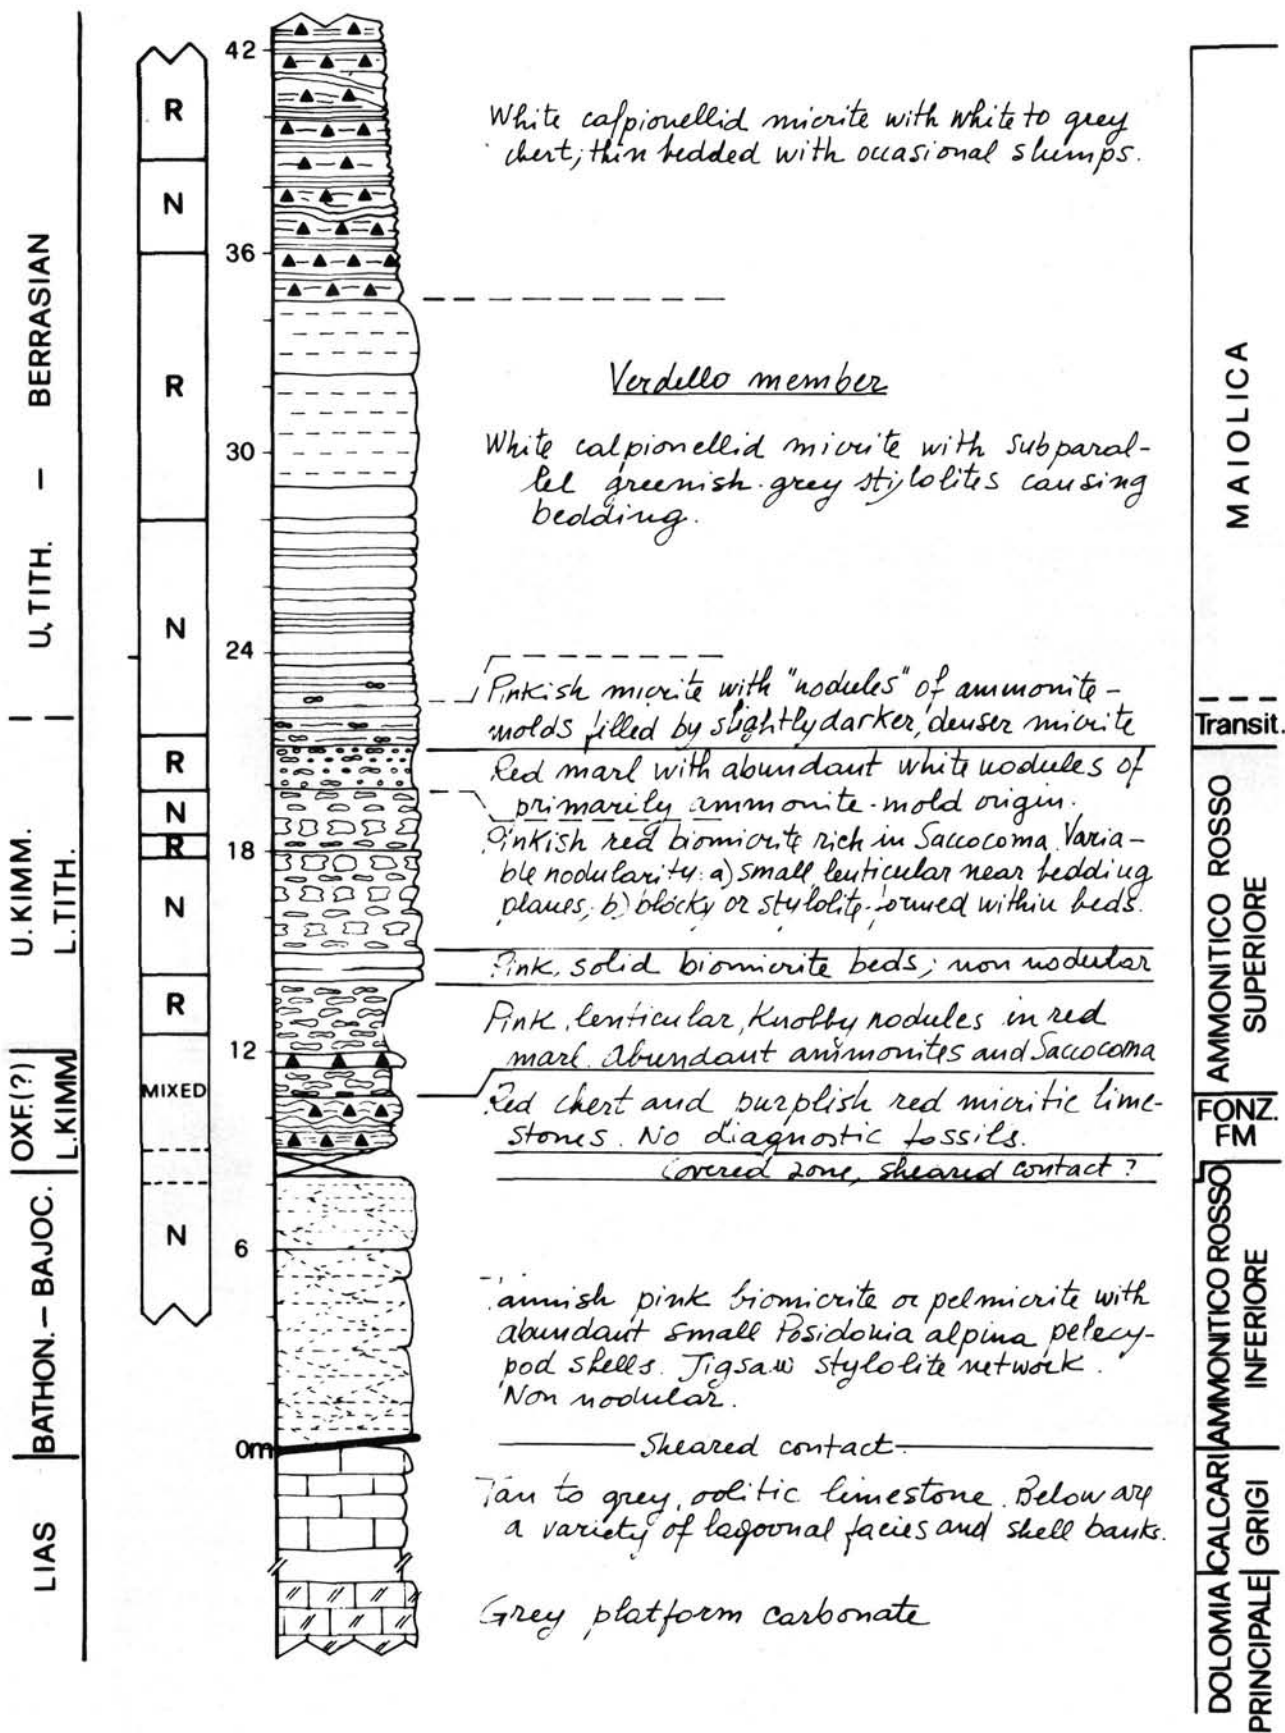 BERRASIAN
—
U. TITH.
U. KIMM.
L. TITH.
OXF.(?)
L. KIMM
BATHON. – BAJOC.
LIAS
R
N
R
N
R
N
R
N
R
MIXED
N
42
36
30
24
18
12
6
0m
White calpionellid micrite with white to grey
chert; thin bedded with occasional slumps.
Verdello member
White calpionellid micrite with subparal-
lel greenish-grey stylolites causing
bedding.
Pinkish micrite with "nodules" of ammonite-
molds filled by slightly darker, denser micrite
Red marl with abundant white nodules of
primarily ammonite-mold origin.
Pinkish red biomicrite rich in Saccocoma. Varia-
ble nodularity: a) small lenticular near bedding
planes; b) blocky or stylolite-formed within beds.
Pink, solid biomicrite beds; non nodular
Pink, lenticular, knobby nodules in red
marl. Abundant ammonites and Saccocoma
Red chert and purplish red micritic lime-
stones. No diagnostic fossils.
Covered zone, sheared contact?
pink biomicrite or pelmicrite with
abundant small Posidonia alpina pelecy-
pod shells. Jigsaw stylolite network.
Non nodular.
Sheared contact
Tan to grey, oolitic limestone. Below are
a variety of lagoonal facies and shell banks.
Grey platform carbonate
MAIOLICA
Transit.
AMMONITICO ROSSO
SUPERIORE
FONZ.
FM
AMMONITICO ROSSO
INFERIORE
CALCARI
GRIGI
DOLOMIA
PRINCIPALE